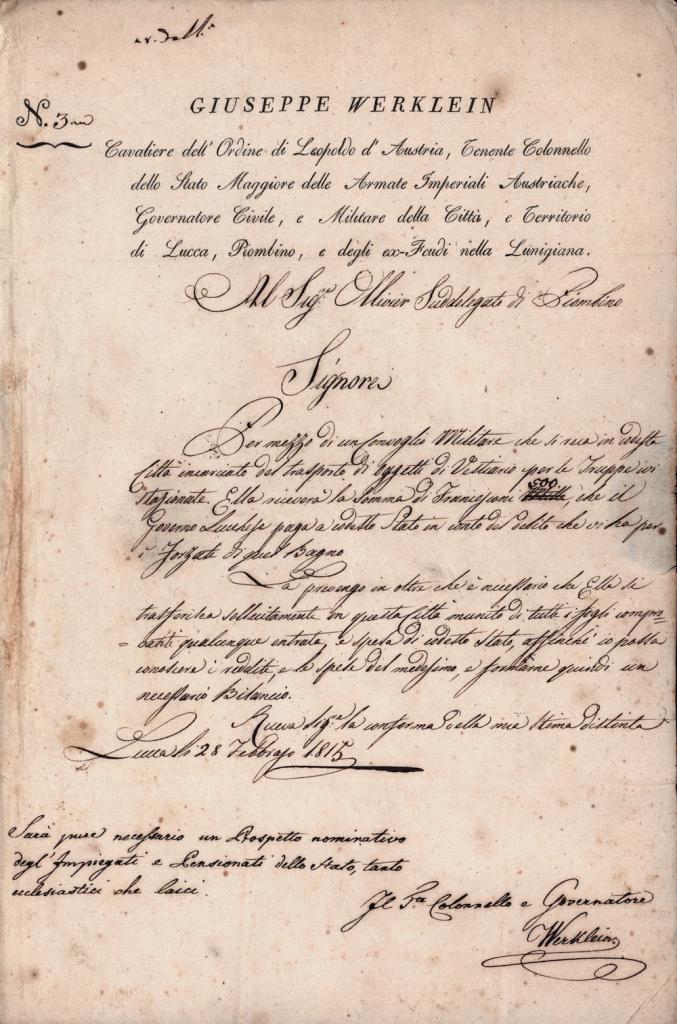 N. 3
GIUSEPPE WERKLEIN
Cavaliere dell' Ordine di Leopoldo d' Austria, Tenente Colonnello
dello Stato Maggiore delle Armate Imperiali Austriache,
Governatore Civile, e Militare della Città, e Territorio
di Lucca, Piombino, e degli ex-Feudi nella Lunigiana.
Al Sig.r Ollivier Suddelegato di Piombino
Signore
Per mezzo di un Convoglio Militare che si reca in codesta
Città incaricato del trasporto di oggetti di Vestiario per le Truppe ivi
stazionate, Ella riceverà la Somma di Francesconi 500, che il
Governo Lucchese paga a codesto Stato in conto del debito che vi ha per
i Forzati di quel Bagno
La prevengo in oltre che è necessario che Ella si
trasferisca sollecitamente in questa Città munito di tutti i fogli compro=
=vanti qualunque entrata, e spesa di codesto Stato, affinchè io possa
conoscere i redditi, e le spese del medesimo, e formarne quindi un
necessario Bilancio.
Riceva Sig.re la conferma della mia stima distinta
Lucca li 28 Febbrajo 1815
Sarà pure necessario un Prospetto nominativo
degl' Impiegati e Pensionati dello Stato, tanto
ecclesiastici che laici.
Il Colonnello e Governatore
Werklein